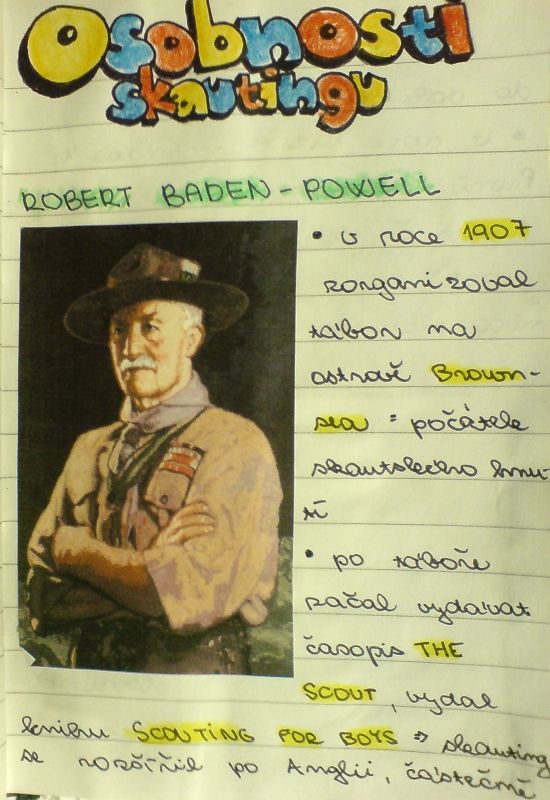 Osobnosti
skautingu
ROBERT BADEN - POWELL
• v roce 1907
zorganizoval
tábor na
ostrově Brown-
sea = počátek
skautského hnu-
tí
• po táboře
začal vydávat
časopis THE
SCOUT, vydal
knihu SCOUTING FOR BOYS ⇒ skauting
se rozšířil po Anglii, částečně